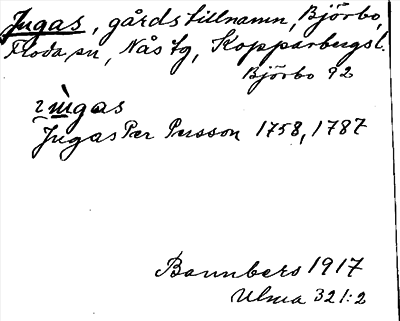 Jugas, gårdstillnamn, Björbo,
Floda sn, Nås tg, Kopparbergs l.
Björbo 92
Jugas Per Persson 1758, 1787
Bannbers 1917
Ulma 321:2